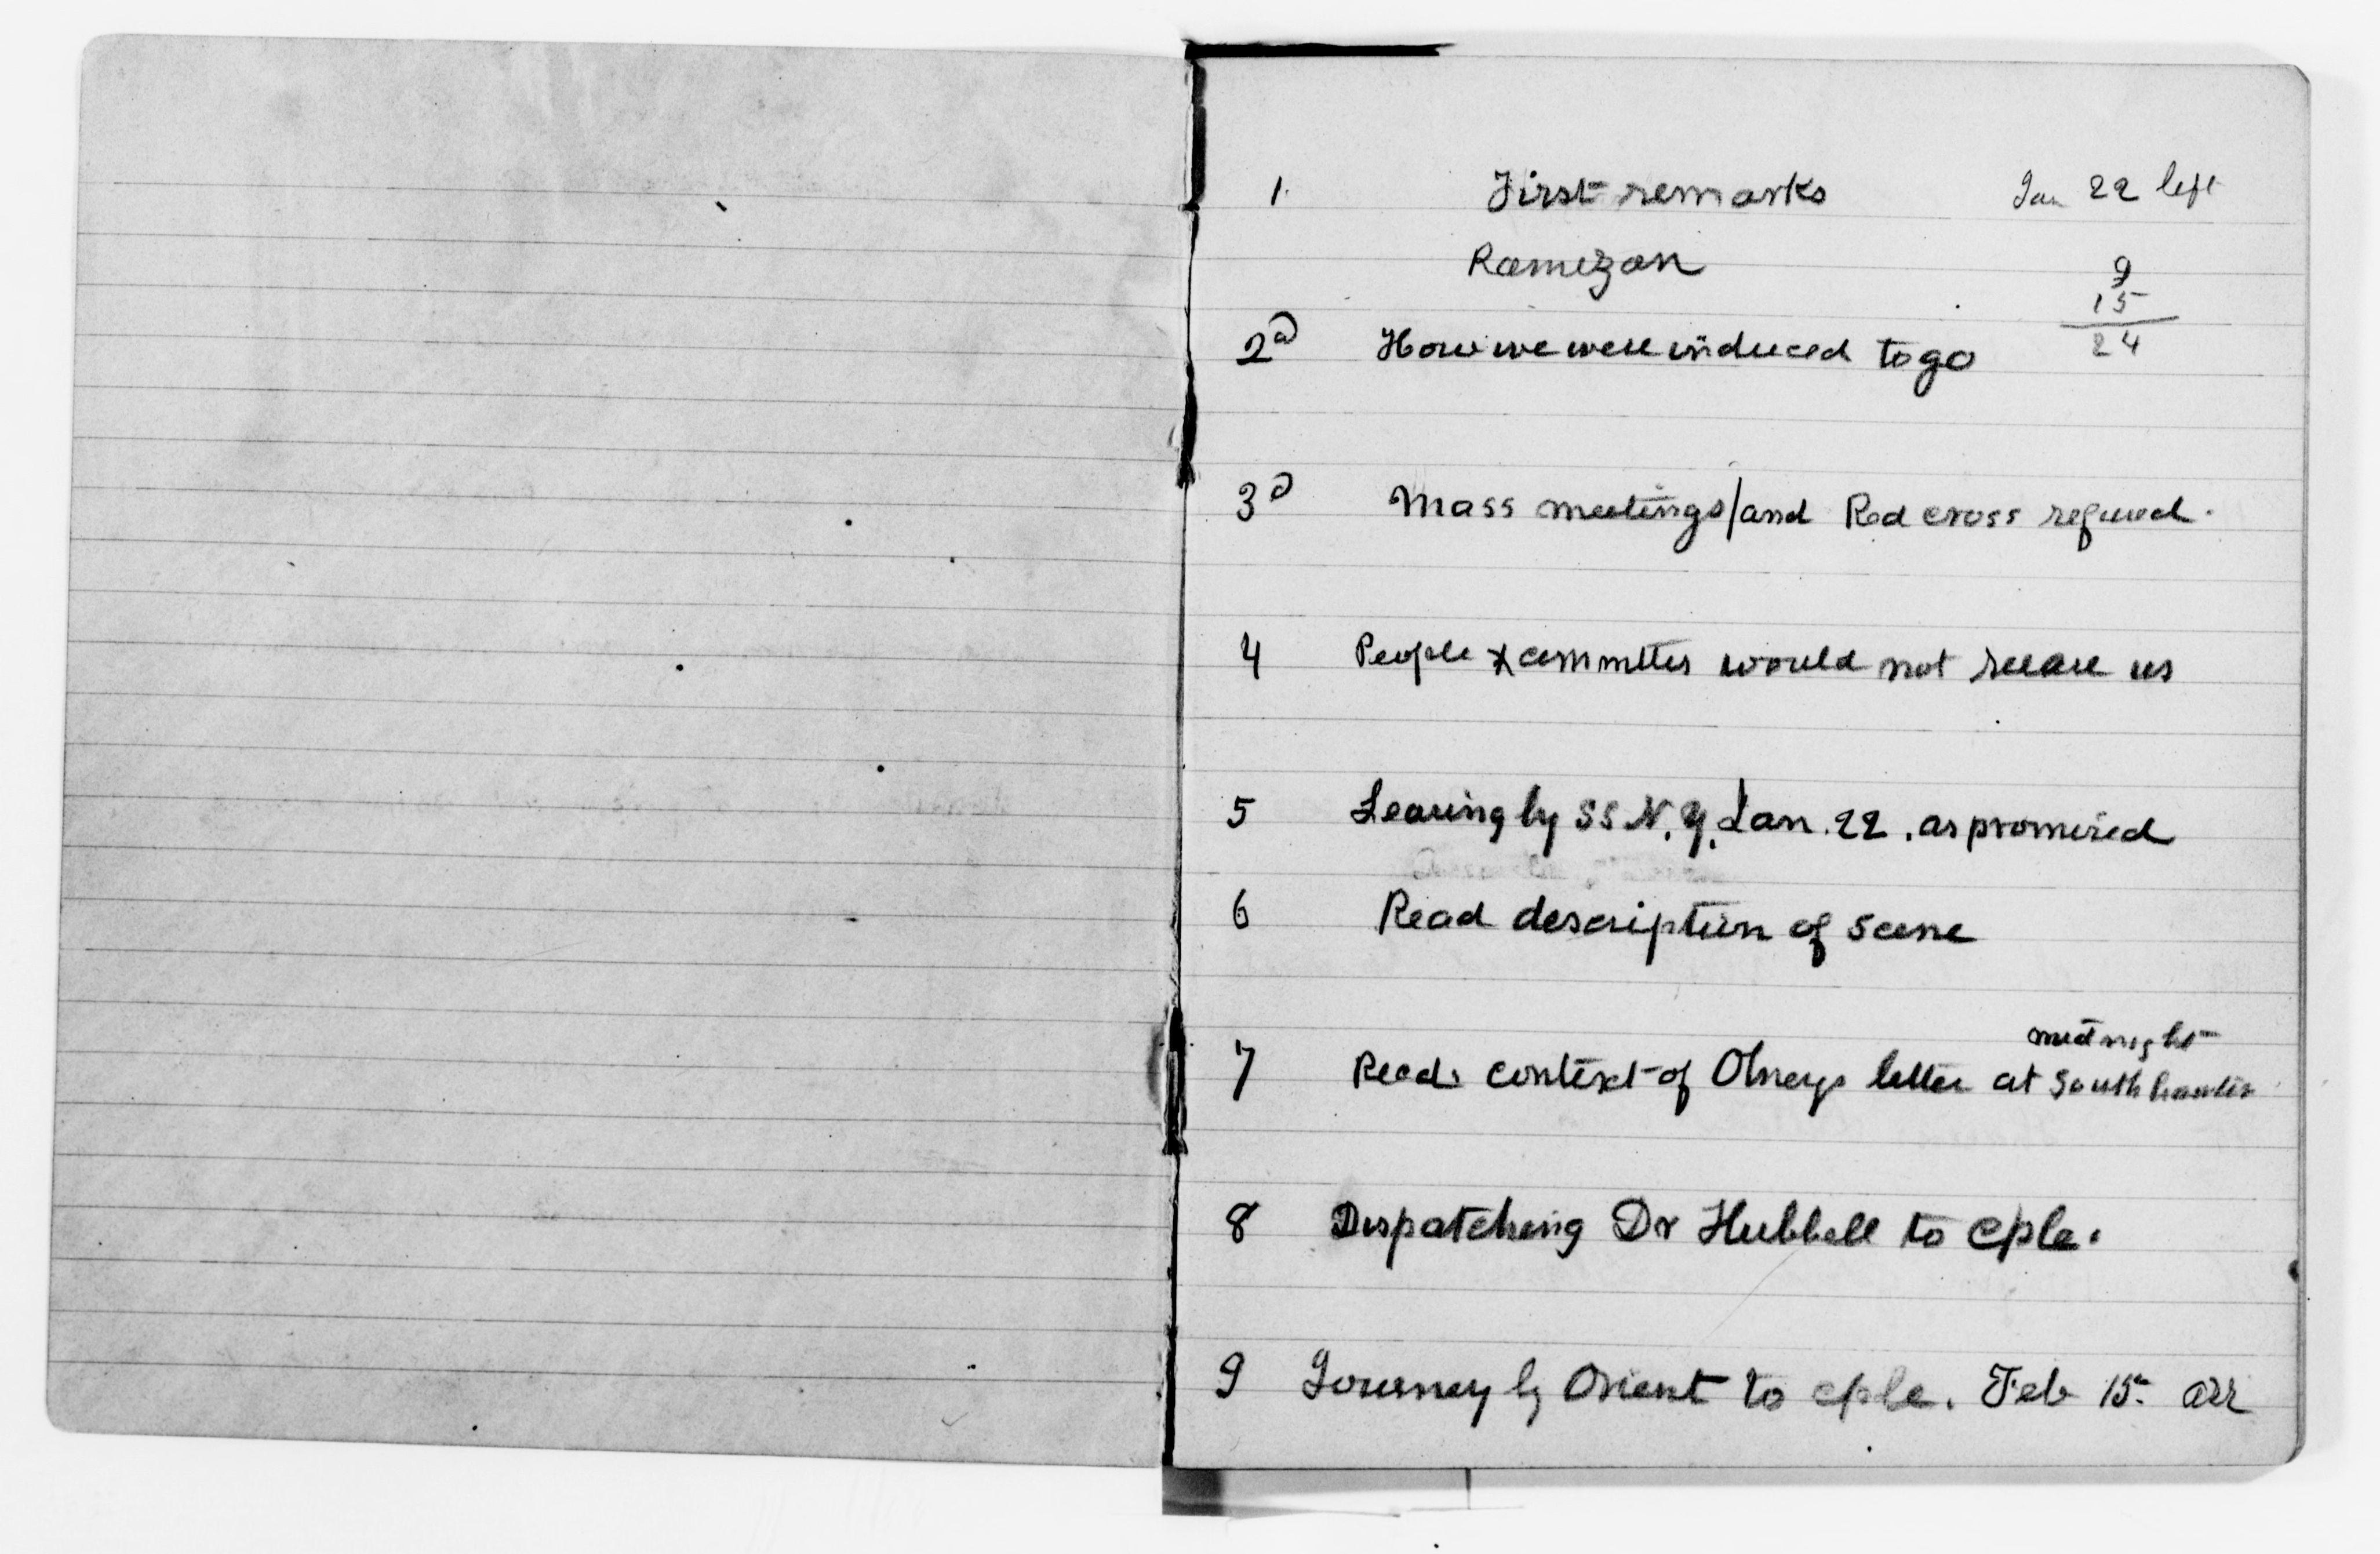 1. First remarks Jan 22 left
Ramezan 9
15
2d How we were induced to go 24
3d Mass meetings/and Red cross refused.
4 People & committees would not release us
5 Leaving by SS N.Y. Jan. 22. as promised
6 Read description of scene
midnight
7 Read context of Olneys letter at Southampton
8 Dispatching Dr Hubbell to Cple.
9 Journey by Orient to Cple. Feb 15. arr